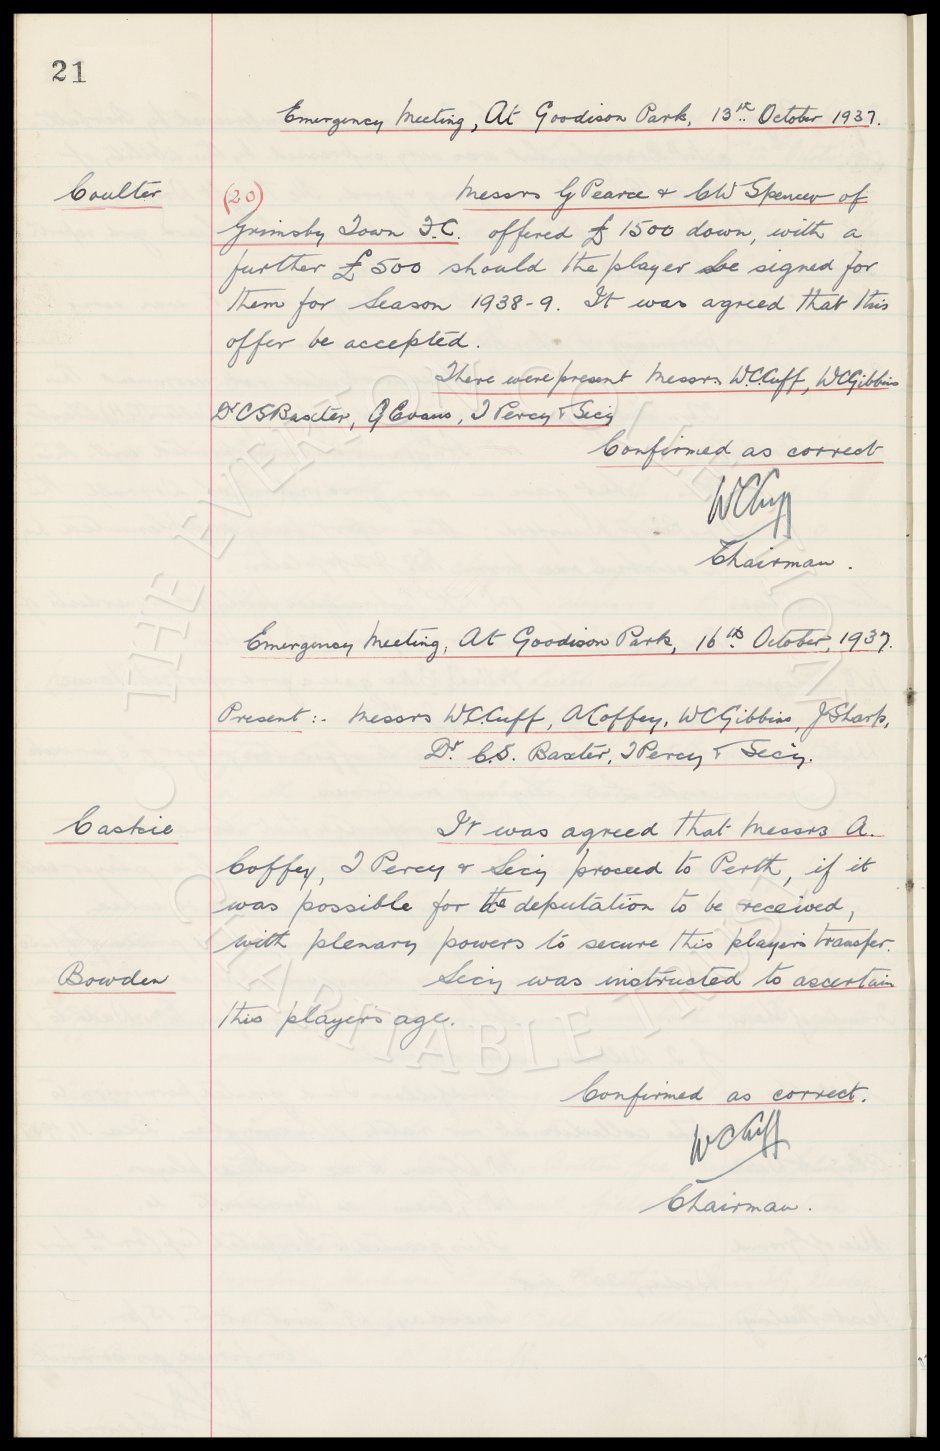 21
Emergency Meeting, At Goodison Park, 13th October 1937.
Coulter
(20) Messrs G Pearce & C W Spencer of
Grimsby Town F.C. offered £1500 down, with a
further £500 should the player be signed for
them for Season 1938-9. It was agreed that this
offer be accepted.
There were present Messrs W.C.Cuff, WCGibbins
Dr C S Baxter, G Evans, T Percy & Secy
Confirmed as correct
WCCuff
Chairman.
Emergency Meeting, At Goodison Park, 16th October, 1937.
Present:- Messrs W.C.Cuff, A Coffey, WCGibbins, J Sharp,
Dr. C.S. Baxter, T Percy & Secy.
Caskie
It was agreed that Messrs A.
Coffey, T Percy & Secy proceed to Perth, if it
was possible for the deputation to be received,
with plenary powers to secure this players transfer.
Bowden
Secy was instructed to ascertain
this players age.
Confirmed as correct.
WCCuff
Chairman.
THE EVERTON COLLECTION
CHARITABLE TRUST